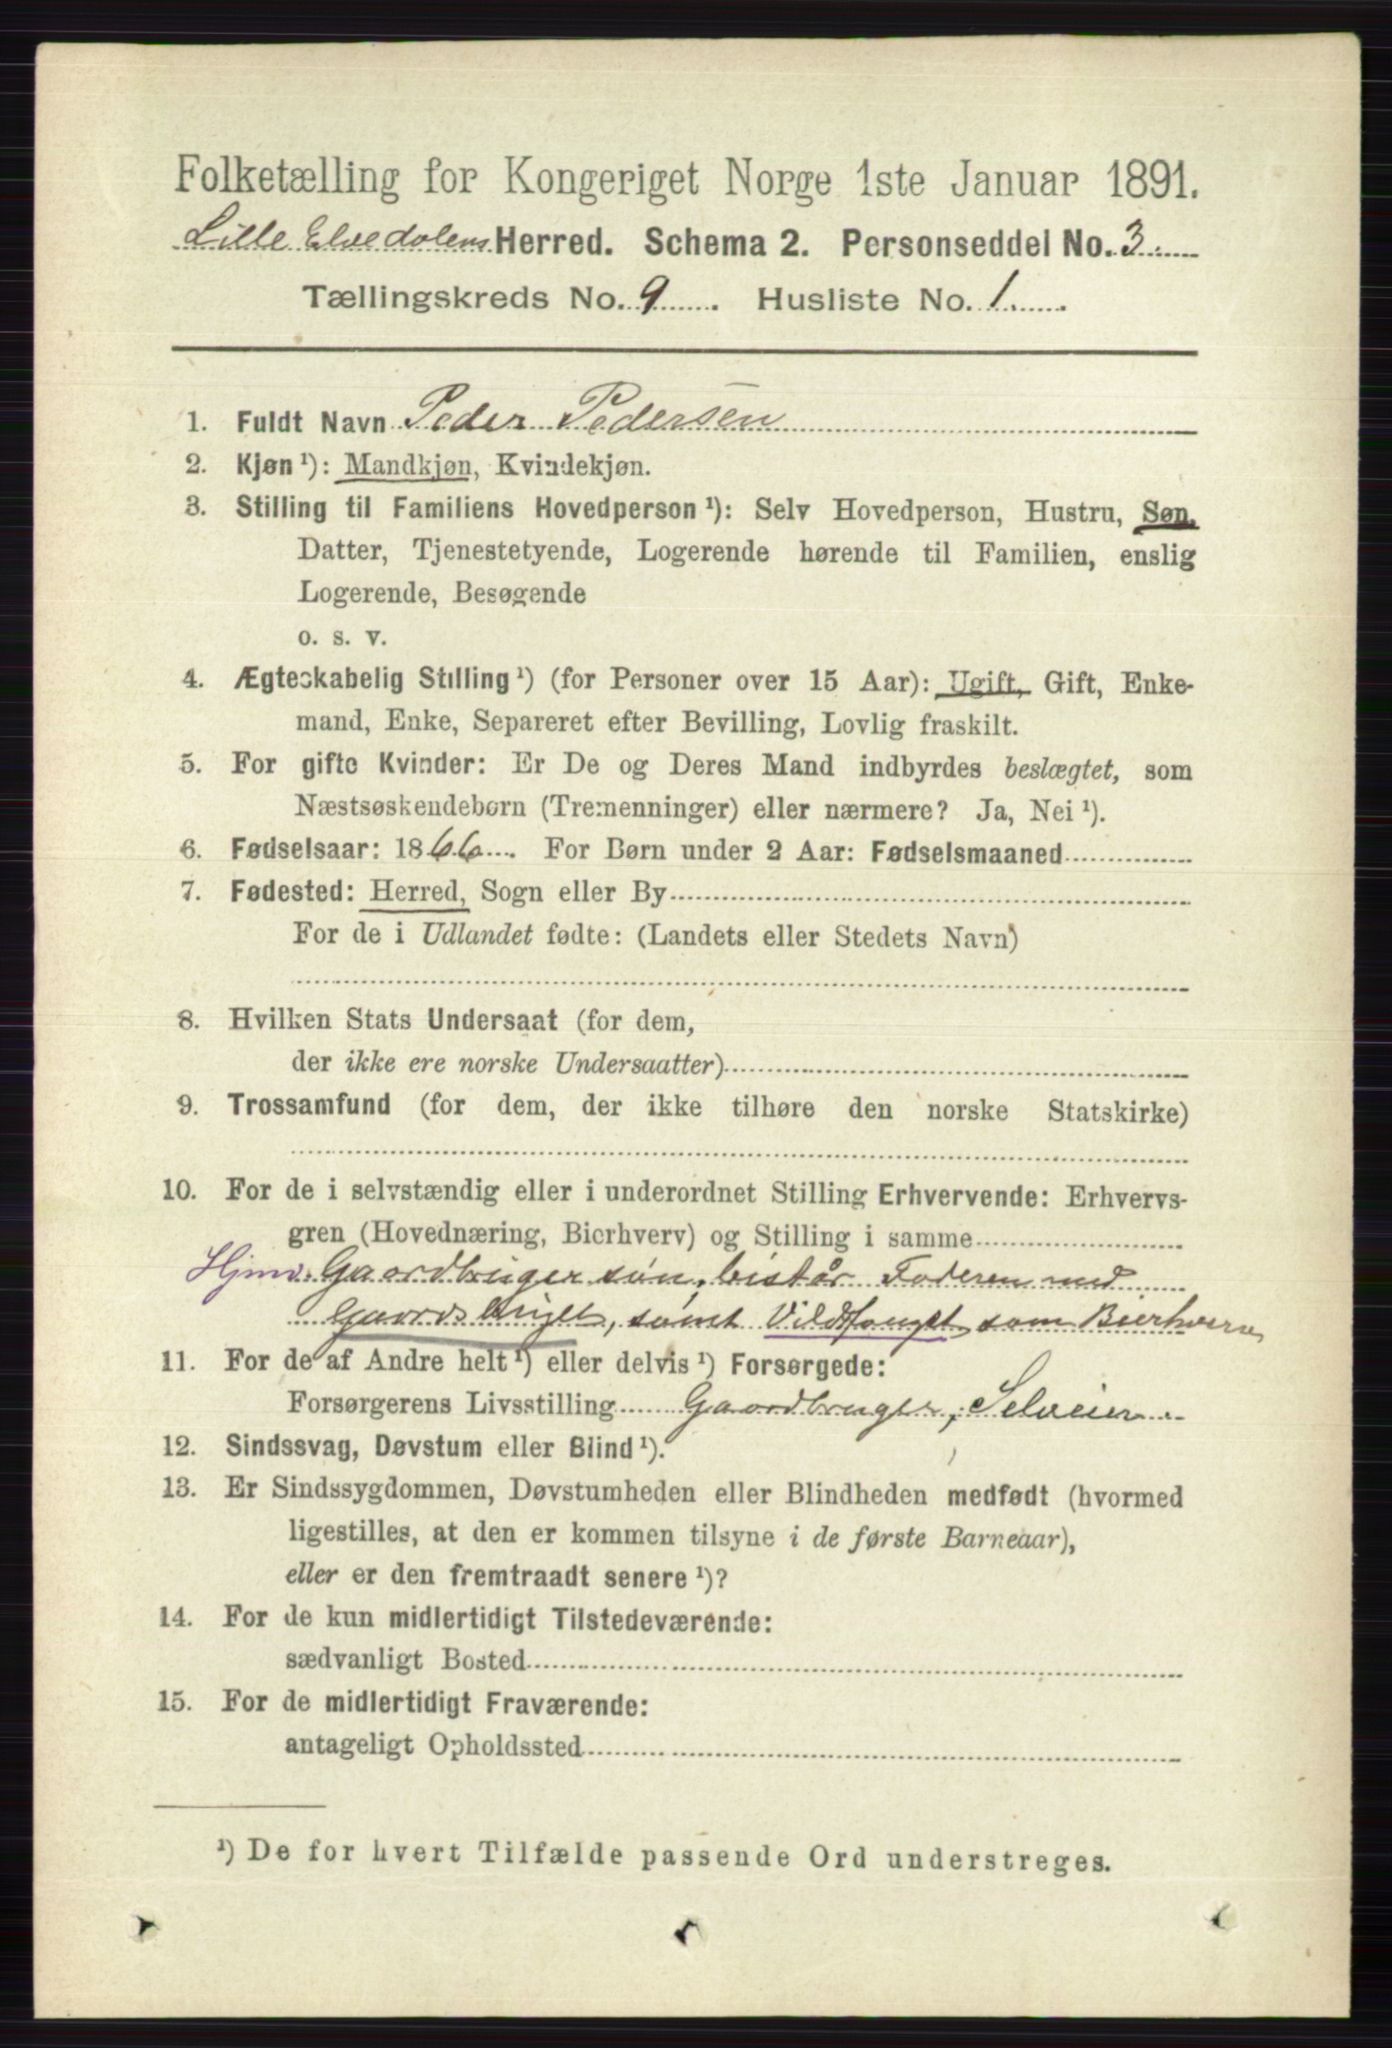 Folketælling for Kongeriget Norge 1ste Januar 1891.
Lille Elvedalens Herred. Schema 2. Personseddel No. 3.
Tællingskreds No. 9. Husliste No. 1.
1. Fuldt Navn Peder Pedersen
2. Kjøn ¹): Mandkjøn, Kvindekjøn.
3. Stilling til Familiens Hovedperson ¹): Selv Hovedperson, Hustru, Søn,
Datter, Tjenestetyende, Logerende hørende til Familien, enslig
Logerende, Besøgende
o. s. v.
4. Ægteskabelig Stilling ¹) (for Personer over 15 Aar): Ugift, Gift, Enke-
mand, Enke, Separeret efter Bevilling, Lovlig fraskilt.
5. For gifte Kvinder: Er De og Deres Mand indbyrdes beslægtet, som
Næstsøskendebørn (Tremenninger) eller nærmere? Ja, Nei ¹).
6. Fødselsaar: 1866. For Børn under 2 Aar: Fødselsmaaned
7. Fødested: Herred, Sogn eller By
For de i Udlandet fødte: (Landets eller Stedets Navn)
8. Hvilken Stats Undersaat (for dem,
der ikke ere norske Undersaatter)
9. Trossamfund (for dem, der ikke tilhøre den norske Statskirke)
10. For de i selvstændig eller i underordnet Stilling Erhvervende: Erhvervs-
gren (Hovednæring, Bierhverv) og Stilling i samme
Gaardbruger søn, bistår Faderen med
Gaardsbruget, samt Vildtfanget som Bierhverv
11. For de af Andre helt ¹) eller delvis ¹) Forsørgede:
Forsørgerens Livsstilling Gaardbruger, Selveier
12. Sindssvag, Døvstum eller Blind ¹).
13. Er Sindssygdommen, Døvstumheden eller Blindheden medfødt (hvormed
ligestilles, at den er kommen tilsyne i de første Barneaar),
eller er den fremtraadt senere ¹)?
14. For de kun midlertidigt Tilstedeværende:
sædvanligt Bosted
15. For de midlertidigt Fraværende:
antageligt Opholdssted
¹) De for hvert Tilfælde passende Ord understreges.